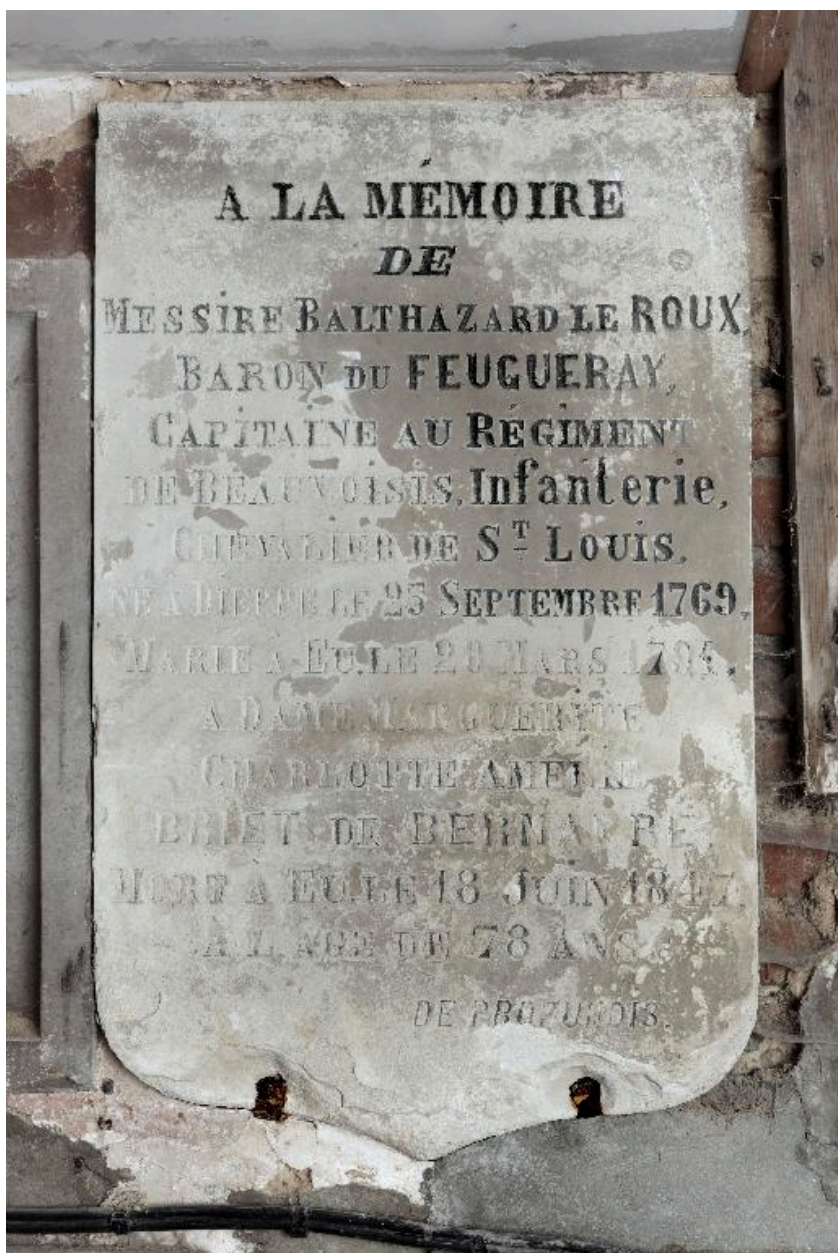 A LA MÉMOIRE
DE
MESSIRE BALTHAZARD LE ROUX,
BARON DU FEUGUERAY,
CAPITAINE AU RÉGIMENT
DE BEAUVOISIS, Infanterie,
CHEVALIER DE S<sup>T</sup> LOUIS,
NÉ A DIEPPE LE 25 SEPTEMBRE 1769,
MARIÉ À EU, LE 29 MARS 1794,
A DAME MARGUERITE
CHARLOTTE AMELIE
BRIET DE BERNAPRE
MORT À EU, LE 18 JUIN 1847,
À L'AGE DE 78 ANS.
DE PROFUNDIS.